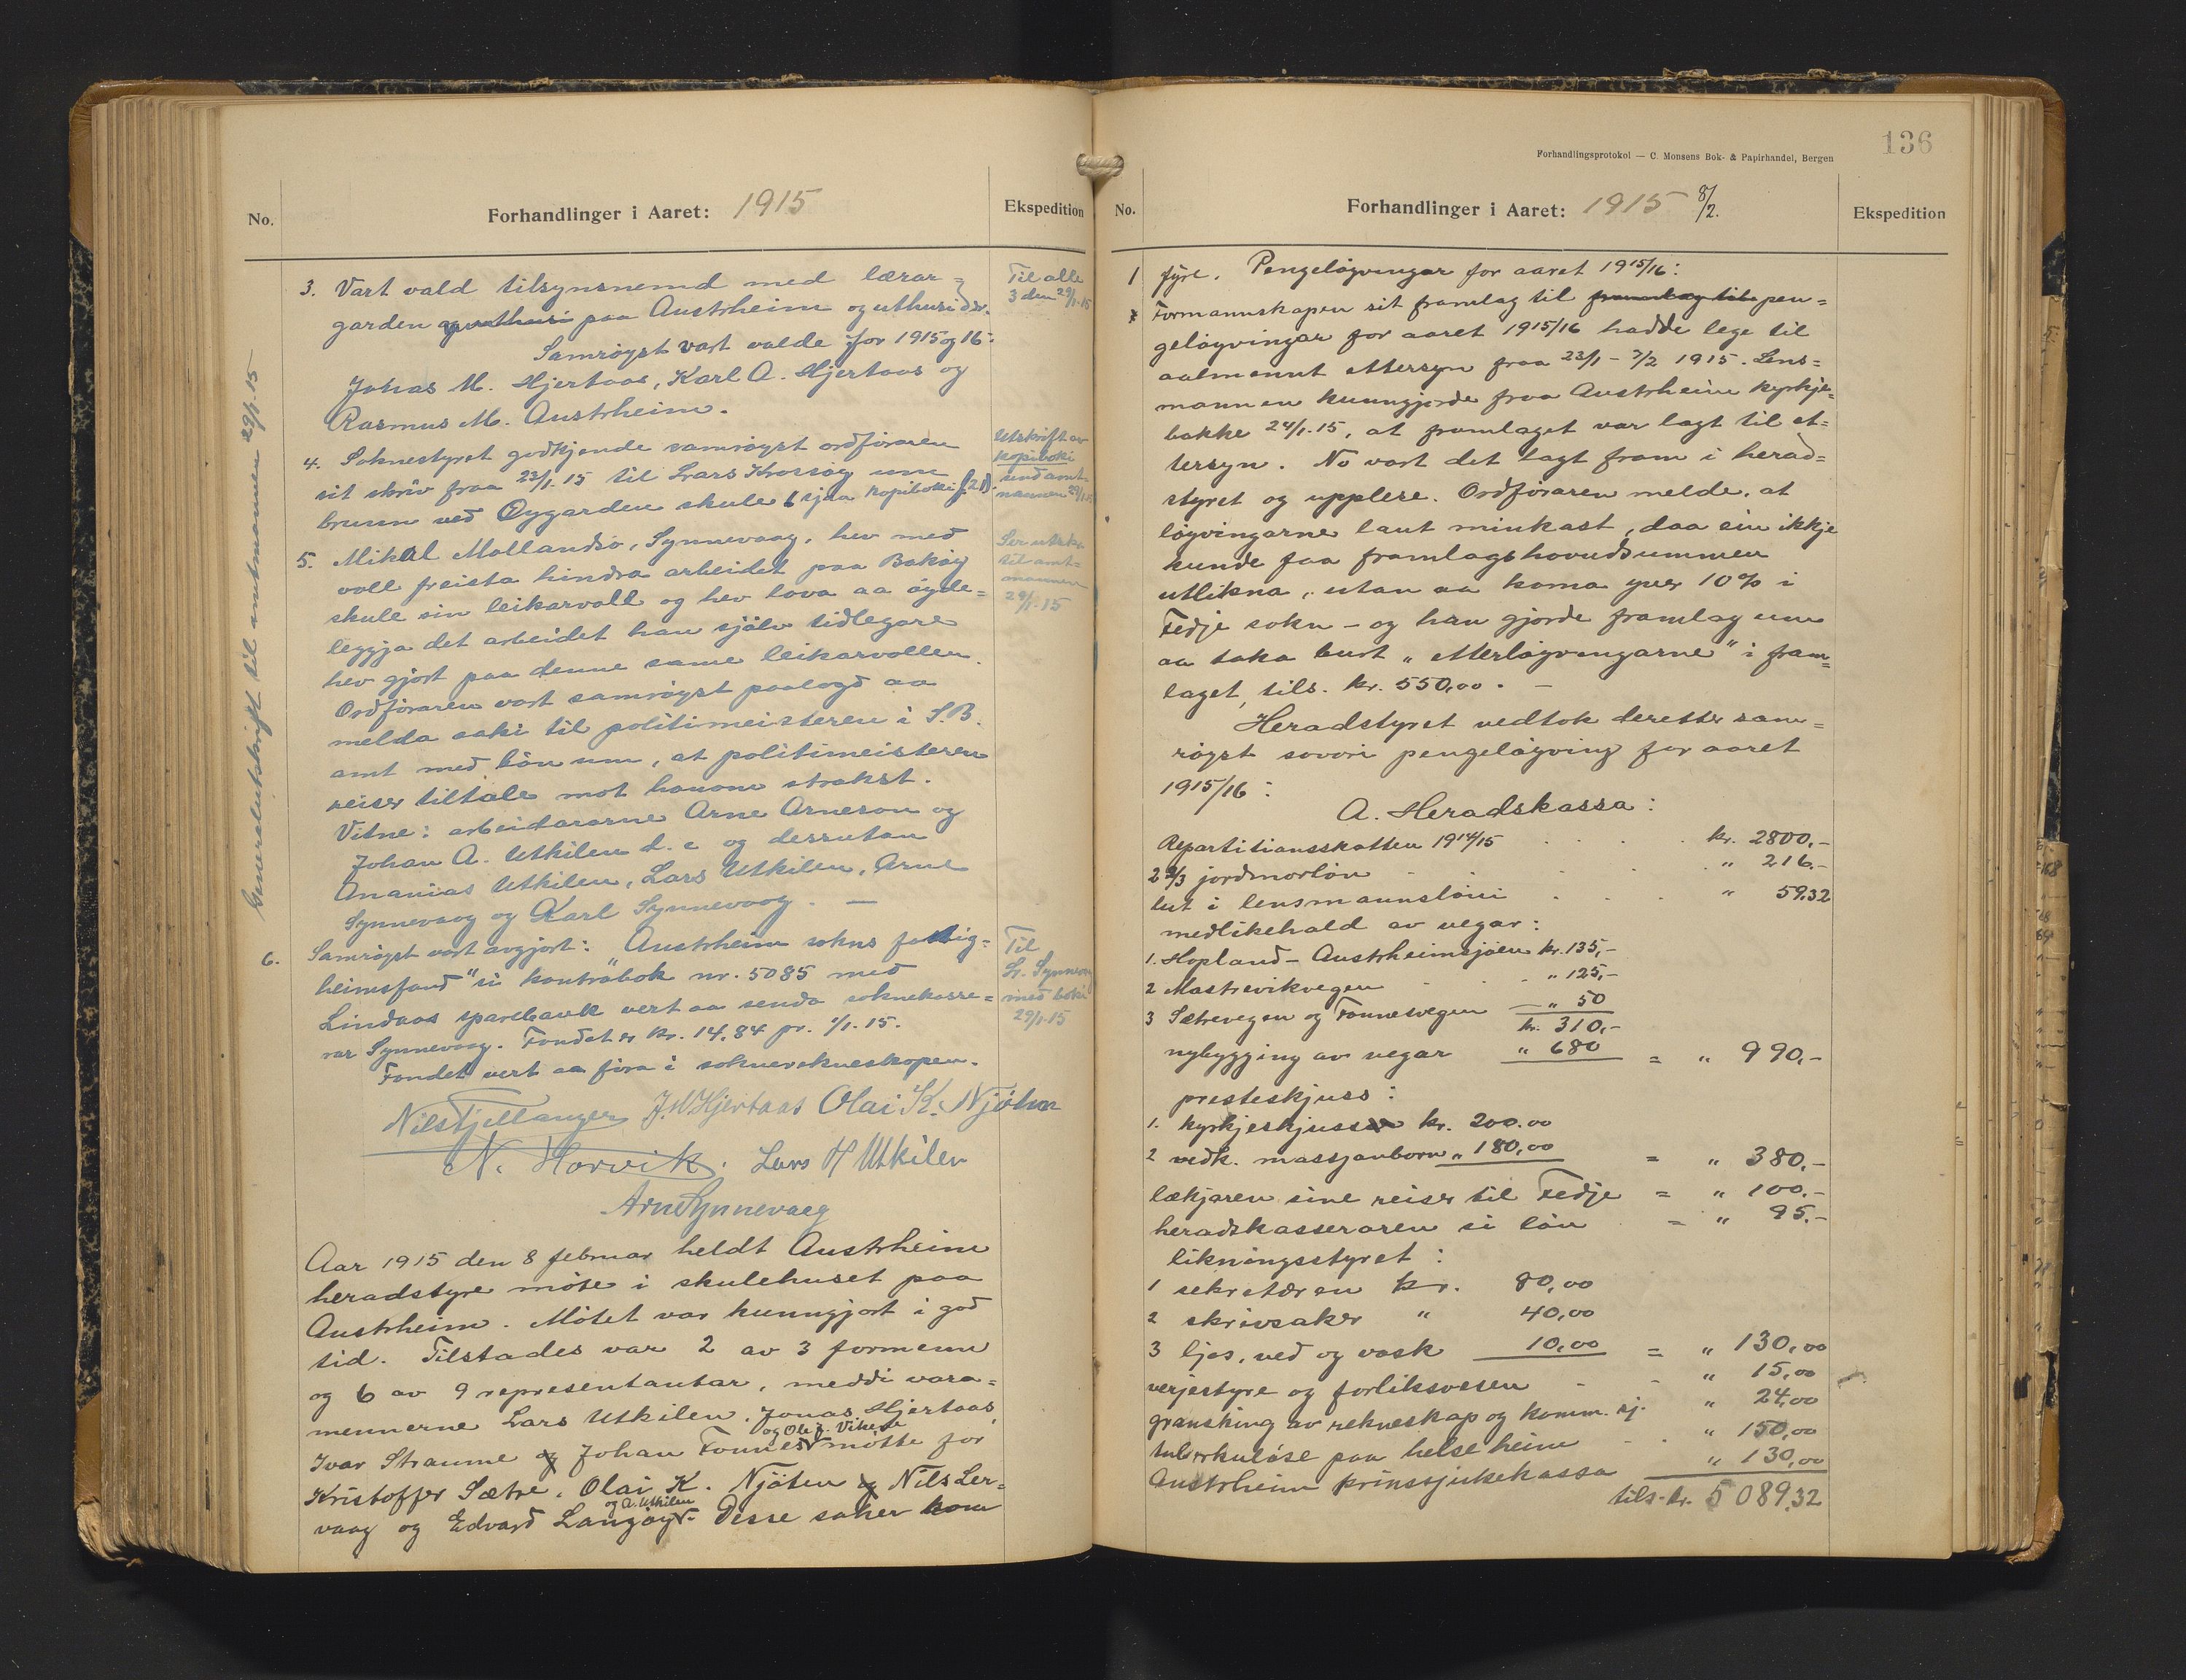 No.
Forhandlinger i Aaret: 1915
Ekspedition
3. Vart vald tilsynsnemd med lærar=
garden og uthusi paa Austrheim og uthusi der.
Samrøyst vart valde for 1915 og 16:
Johas M. Hjertaas, Karl A. Hjertaas og
Rasmus M. Austrheim.
Til alle
3 den 29/1.15
4. Soknestyret godkjende samrøyst ordføraren
sit skriv fraa 23/1.15 til Lars Krossøy um
brunn ved Øygarden skule (sjaa kopiboki s. 21).
Utskrift av
kopiboki
send amt-
mannen 29/1.15
5. Mikal Mollandsø, Synnevaag, hev med
vald freista hindra arbeidet paa Bakøy
skule sin leikarvoll og hev lova aa øyde=
leggja det arbeidet han sjølv tidlegare
hev gjort paa denne same leikarvollen.
Ordføraren vart samrøyst paalogd aa
melda saki til politimeisteren i S.B.
amt med bøn um, at politimeisteren
reiser tiltale mot honom strakst.
Vitne: arbeidararne Arne Arneson og
Johan A. Utkilen d. e og dessutan
Ananias Utkilen, Lars Utkilen, Arne
Synnevaag og Karl Synnevaag. —
Ser utskr.
til amt=
mannen
29/1.15
6. Samrøyst vart avgjort: Austrheim sokns fattig=
heimsfond "si kontrabok nr. 5085 med
Lindaas sparebank vert aa senda soknekasse=
rar Synnevaag. Fondet er kr. 14,84 pr. 1/1.15.
Fondet vert aa føra i soknerekneskapen.
Til
Lr. Synnevaag
med boki
29/1.15
Nils Fjellanger J. M Hjertaas Olai K. Njøten
N. Horvik. Lars H Utkilen
Arne Synnevaag
Generalutskrift til amtmannen 29/1.15
Aar 1915 den 8 februar heldt Austrheim
heradstyre møte i skulehuset paa
Austrheim. Møtet var kunngjort i god
tid. Tilstades var 2 av 3 formenn
og 6 av 9 representantar, meddi vara=
mennerne Lars Utkilen, Jonas Hjertaas,
og Ole J. Vikese
Ivar Straume og Johan Fonnes møtte for
Kristoffer Sætre, Olai K. Njøten og Nils Ler=
og A. Utkilen
vaag og Edvard Langøy. Desse saker kom
136
Forhandlingsprotokol — C. Monsens Bok- & Papirhandel, Bergen
No.
Forhandlinger i Aaret: 1915 8/2.
Ekspedition
1 fyre. Pengeløyvingar for aaret 1915/16:
Formannskapen sit framlag til framlag til pen=
geløyvingar for aaret 1915/16 hadde lege til
aalmennt ettersyn fraa 23/1 - 7/2 1915. Lens=
mannen kunngjorde fraa Austrheim kyrkje=
bakke 24/1.15, at framlaget var lagt til et=
tersyn. No vart det lagt fram i herad=
styret og upplese. Ordføraren melde, at
løyvingarne laut minkast, daa ein ikkje
kunde faa framlagshovudsummen
utlikna, utan aa koma yver 10% i
Fedje sokn - og han gjorde framlag um
aa taka burt „etterløyvingarne" i fram=
laget, tils. kr. 550,00. —
Heradstyret vedtok deretter sam=
røyst sovori pengeløyving for aaret
1915/16:
A. Heradskassa:
Repartitionsskatten 1914/15 kr. 2800,-
2 2/3 jordmorløn " 216.-
lut i lensmannsløni " 59.32
medlikehald av vegar:
1. Hopland - Austrheimsjøen kr. 135,-
2 Mastrevikvegen " 125,-
3 Sætrevegen og Fonnesvegen " 50
kr. 310,-
nybygging av vegar " 680 = " 990,-
presteskjuss:
1. kyrkjeskjuss kr. 200.00
2 vedk. massjonborn " 180,00 = " 380,-
lækjaren sine reiser til Fedje = " 100,-
heradskasseraren si løn = " 95,-
likningsstyret:
1 sekretæren kr. 80,00
2 skrivsaker " 40,00
3 ljos, ved og vask 10,00 = " 130,00
verjestyre og forliksvesen - - " 15,00
gransking av rekneskap og komm. rj. " 24,00
tuberkuløse paa helseheim " 150,00
Austrheim krinssjukekassa " 130,00
tils. kr. 5089,32